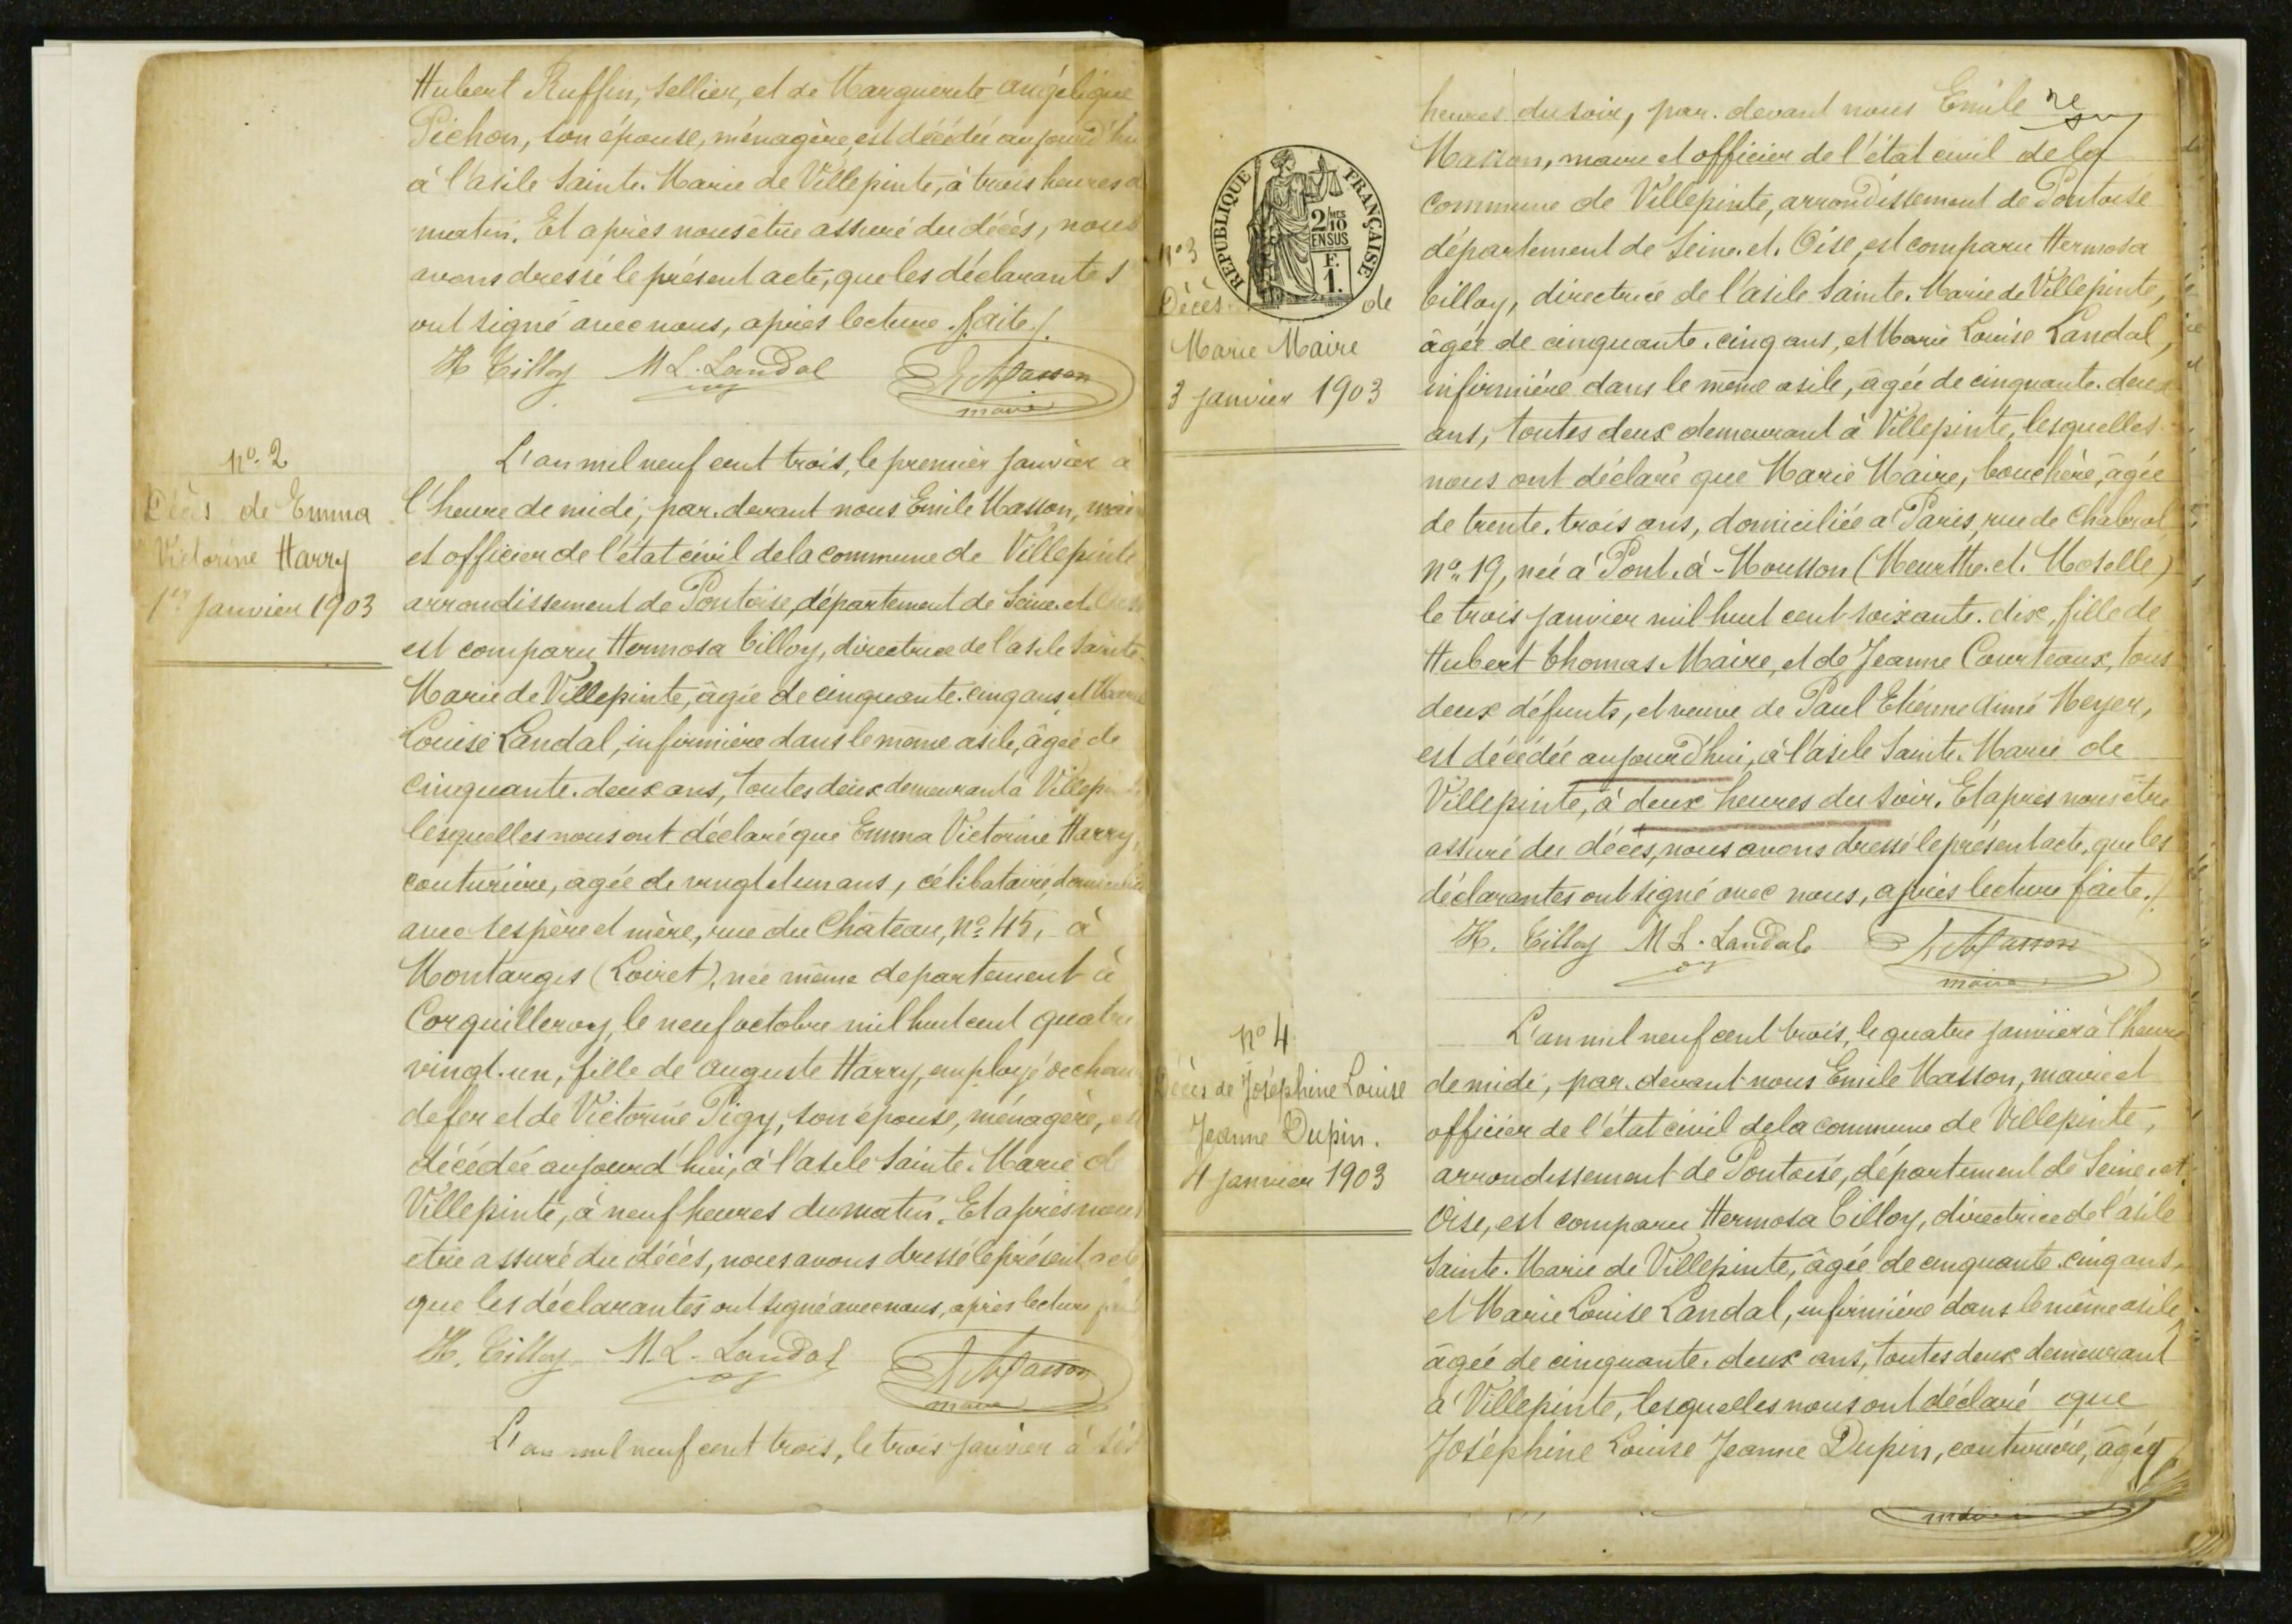 Hubert Ruffin, sellier, et de Marguerite Angélique
Pichon, son épouse, ménagère, est décédée aujourd'hui
à l'asile Sainte-Marie de Villepinte, à trois heures
matin. Et après nous être assuré du décès, nous
avons dressé le présent acte, que les déclarantes
ont signé avec nous, après lecture faite./.
H Tilloy M L. Landal E Masson
maire
N° 2
Décès de Emma
Victorine Harry
1er Janvier 1903
L'an mil neuf cent trois, le premier janvier à
l'heure de midi, par-devant nous Emile Masson, maire
et officier de l'état civil de la commune de Villepinte
arrondissement de Pontoise, département de Seine-et-Oise
est comparu Hermosa Tilloy, directrice de l'asile Sainte-
Marie de Villepinte, âgée de cinquante-cinq ans, et Marie
Louise Landal, infirmière dans le même asile, âgée de
cinquante-deux ans, toutes deux demeurant à Villepinte
lesquelles nous ont déclaré que Emma Victorine Harry,
couturière, âgée de vingt et un ans, célibataire, domiciliée
avec ses père et mère, rue du Château, N° 45, à
Montargis (Loiret), née même département à
Corquilleroy, le neuf octobre mil huit cent quatre
vingt-un, fille de Auguste Harry, employé de chemin
de fer et de Victorine Pigy, son épouse, ménagère, est
décédée aujourd'hui, à l'asile Sainte-Marie de
Villepinte, à neuf heures du matin. Et après nous
être assuré du décès, nous avons dressé le présent acte
que les déclarantes ont signé avec nous, après lecture
H. Tilloy M. L. Landal E Masson
maire
L'an mil neuf cent trois, le trois janvier à
N° 3
Décès de
Marie Maire
3 janvier 1903
RÉPUBLIQUE FRANÇAISE
2/10 MES
EN SUS
F.
1.
heures du soir, par-devant nous Emile
Masson, maire et officier de l'état civil de la
commune de Villepinte, arrondissement de Pontoise
département de Seine-et-Oise, est comparu Hermosa
Tilloy, directrice de l'asile Sainte-Marie de Villepinte,
âgée de cinquante-cinq ans, et Marie Louise Landal,
infirmière dans le même asile, âgée de cinquante-deux
ans, toutes deux demeurant à Villepinte, lesquelles
nous ont déclaré que Marie Maire, bouchère, âgée
de trente-trois ans, domiciliée à Paris, rue de Chabrol
N° 19, née à Pont-à-Mousson (Meurthe-et-Moselle)
le trois janvier mil huit cent soixante-dix, fille de
Hubert Thomas Maire, et de Jeanne Courteaux, tous
deux défunts, et veuve de Paul Etienne Aimé Meyer,
est décédée aujourd'hui, à l'asile Sainte-Marie de
Villepinte, à deux heures du soir. Et après nous être
assuré du décès, nous avons dressé le présent acte, que les
déclarantes ont signé avec nous, après lecture faite./.
H. Tilloy M L. Landal E Masson
maire
N° 4
Décès de Joséphine Louise
Jeanne Dupin.
4 janvier 1903
L'an mil neuf cent trois, le quatre janvier à l'heure
de midi, par-devant nous Emile Masson, maire et
officier de l'état civil de la commune de Villepinte,
arrondissement de Pontoise, département de Seine-et-
Oise, est comparu Hermosa Tilloy, directrice de l'asile
Sainte-Marie de Villepinte, âgée de cinquante-cinq ans,
et Marie Louise Landal, infirmière dans le même asile,
âgée de cinquante-deux ans, toutes deux demeurant
à Villepinte, lesquelles nous ont déclaré que
Joséphine Louise Jeanne Dupin, couturière, âgée
maire